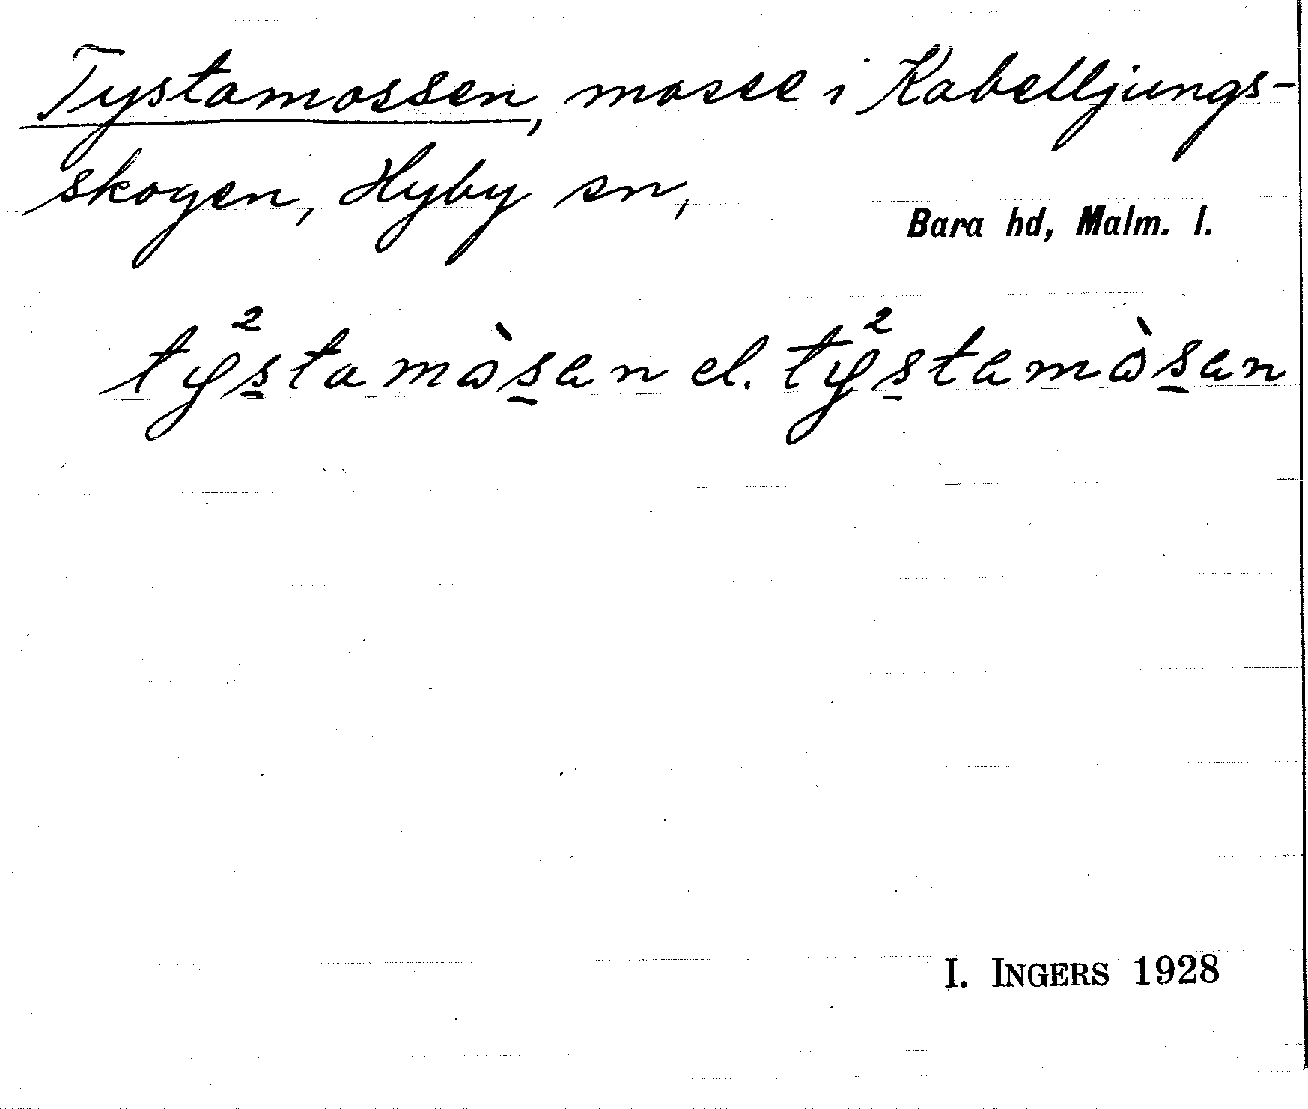 Tystamossen, mosse i Kabelljungs-
skogen, Hyby sn,
Bara hd, Malm. l.
ty²stamòsen el. ty²stemòsen
I. INGERS 1928